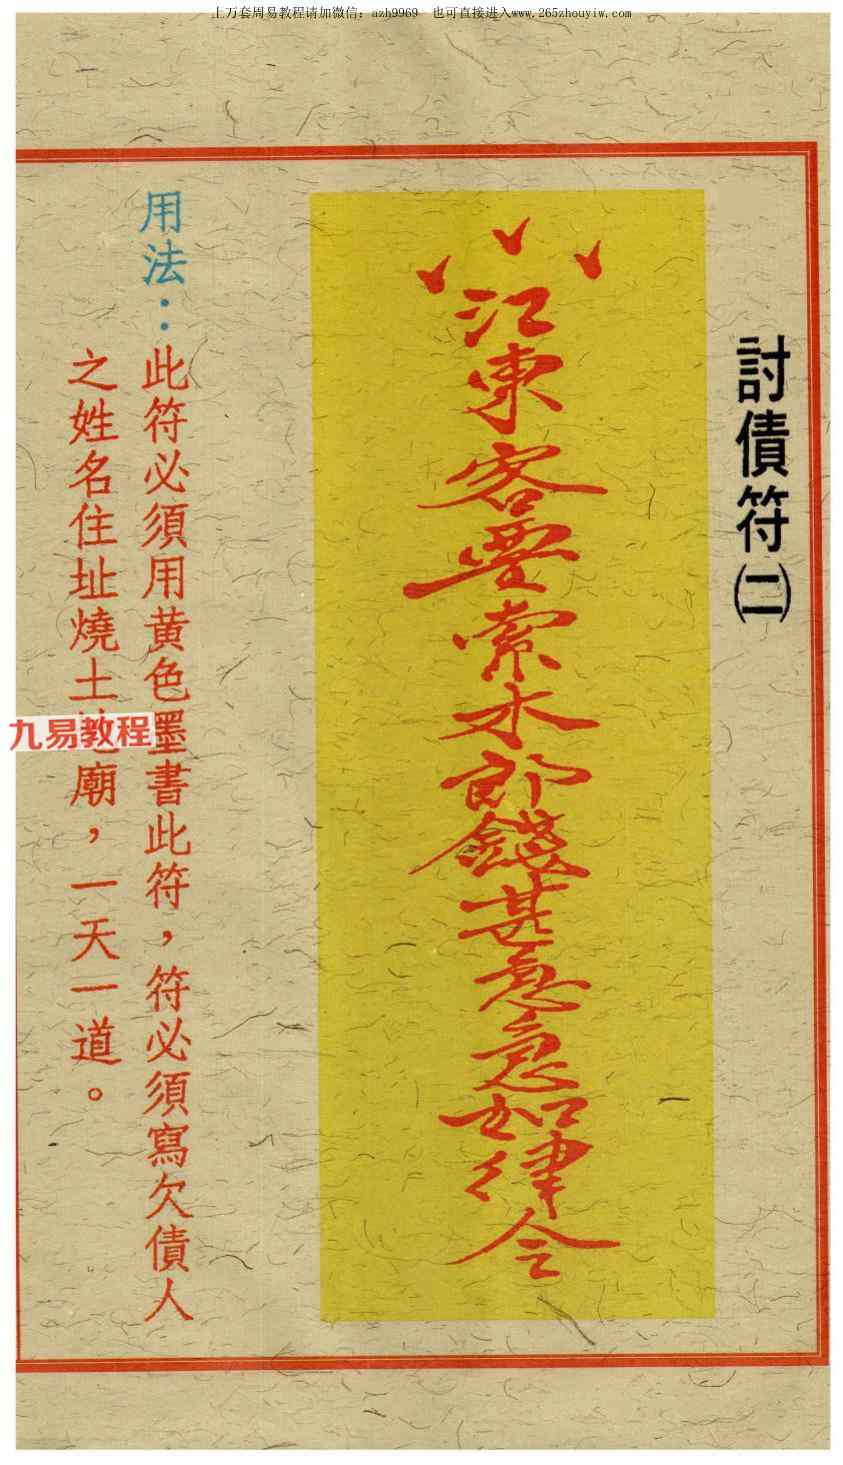 上万套周易教程请加微信：azh9969 也可直接进入www.265zhouyiw.com
討債符㈡
江東客要索木郎錢甚急急如律令
用法：此符必須用黄色墨書此符，符必須寫欠債人
之姓名住址燒土地廟，一天一道。
九易教程